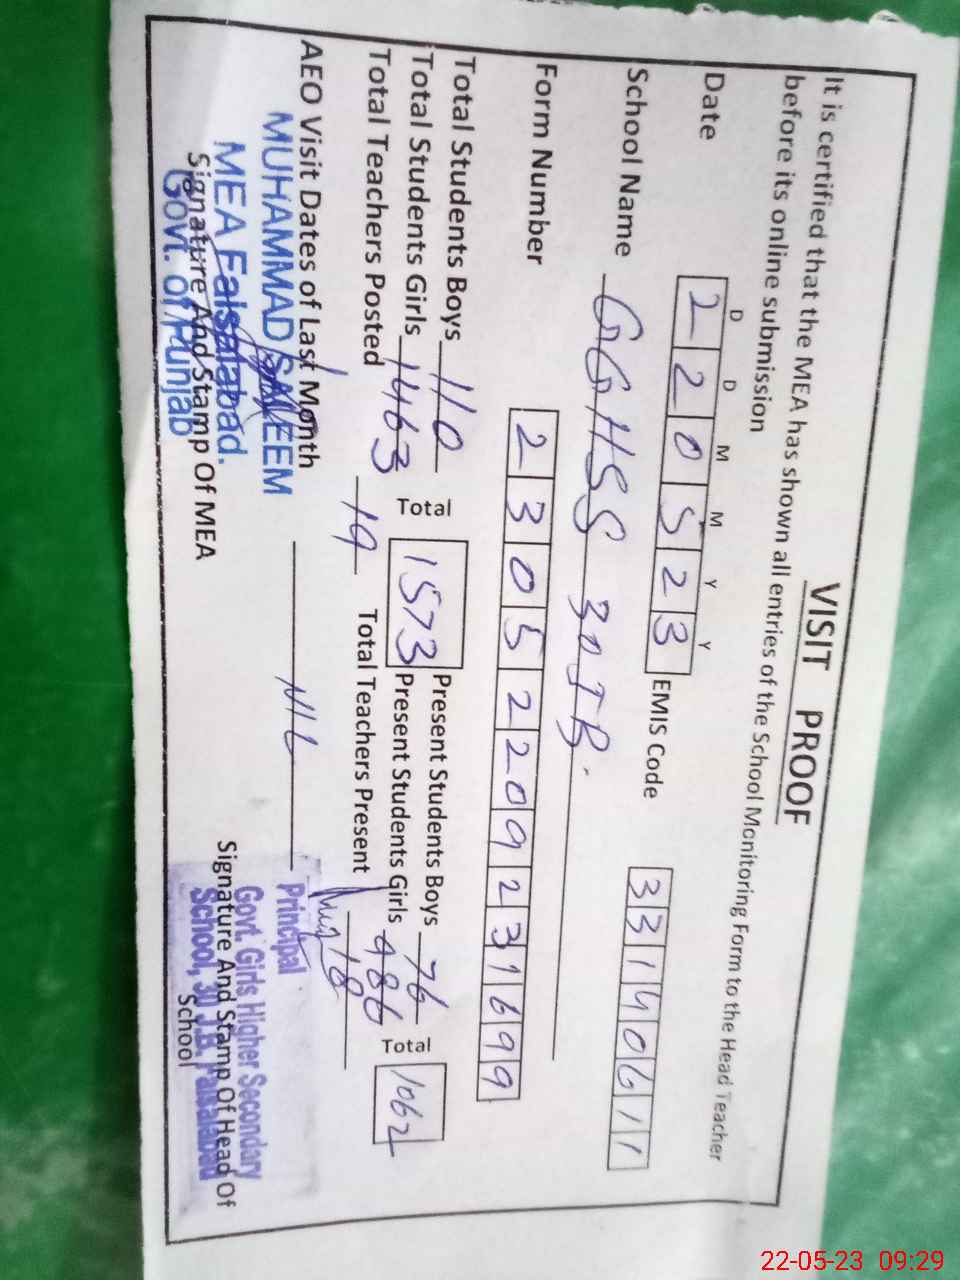 VISIT PROOF
It is certified that the MEA has shown all entries of the School Monitoring Form to the Head Teacher
before its online submission
D D M M Y Y
Date 2 2 0 5 2 3 EMIS Code 3 3 1 4 0 6 1 1
School Name GGHSS 30 JB.
Form Number 2 3 0 5 2 2 0 9 2 3 1 6 9 9
Total Students Boys 110 Present Students Boys 76
Total Students Girls 1463 Total 1573 Present Students Girls 986 Total 1062
Total Teachers Posted 19 Total Teachers Present 18
AEO Visit Dates of Last Month NIL
MUHAMMAD SALEEM
MEA Faisalabad.
Govt. of Punjab
Signature And Stamp Of MEA
Principal
Govt. Girls Higher Secondary
School, 30 J.B. Faisalabad
Signature And Stamp Of Head Of
School
22-05-23 09:29